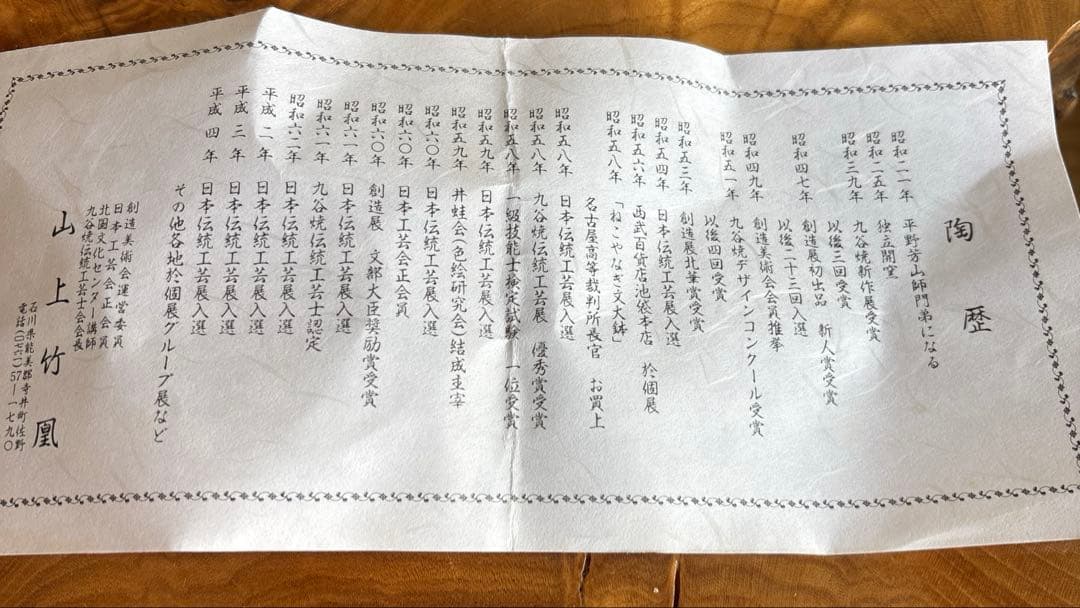 陶歴
昭和二一年 平野芳山師門弟になる
昭和二五年 独立開窯
昭和三九年 九谷焼新作展受賞
以後三回受賞
昭和四七年 創造展初出品 新人賞受賞
以後二十三回入選
昭和四九年 創造美術会会員推挙
昭和五一年 九谷焼デザインコンクール受賞
以後四回受賞
昭和五三年 創造展北華賞受賞
昭和五四年 日本伝統工芸展入選
昭和五六年 西武百貨店池袋本店 於個展
昭和五八年 「ねこやなぎ文大鉢」
名古屋高等裁判所長官 お買上
昭和五八年 日本伝統工芸展入選
昭和五八年 九谷焼伝統工芸展 優秀賞受賞
昭和五八年 一級技能士検定試験 一位受賞
昭和五九年 日本伝統工芸展入選
昭和五九年 井蛙会(色絵研究会)結成主宰
昭和六〇年 日本伝統工芸展入選
昭和六〇年 日本工芸会正会員
昭和六〇年 創造展 文部大臣奨励賞受賞
昭和六一年 日本伝統工芸展入選
昭和六一年 九谷焼伝統工芸士認定
昭和六二年 日本伝統工芸展入選
平成二年 日本伝統工芸展入選
平成三年 日本伝統工芸展入選
平成四年 日本伝統工芸展入選
その他各地於個展グループ展など
創造美術会運営委員
日本工芸会正会員
北国文化センター講師
九谷焼伝統工芸士会会長
山上竹凰
石川県能美郡寺井町佐野
電話(〇七六一)57-一七九〇